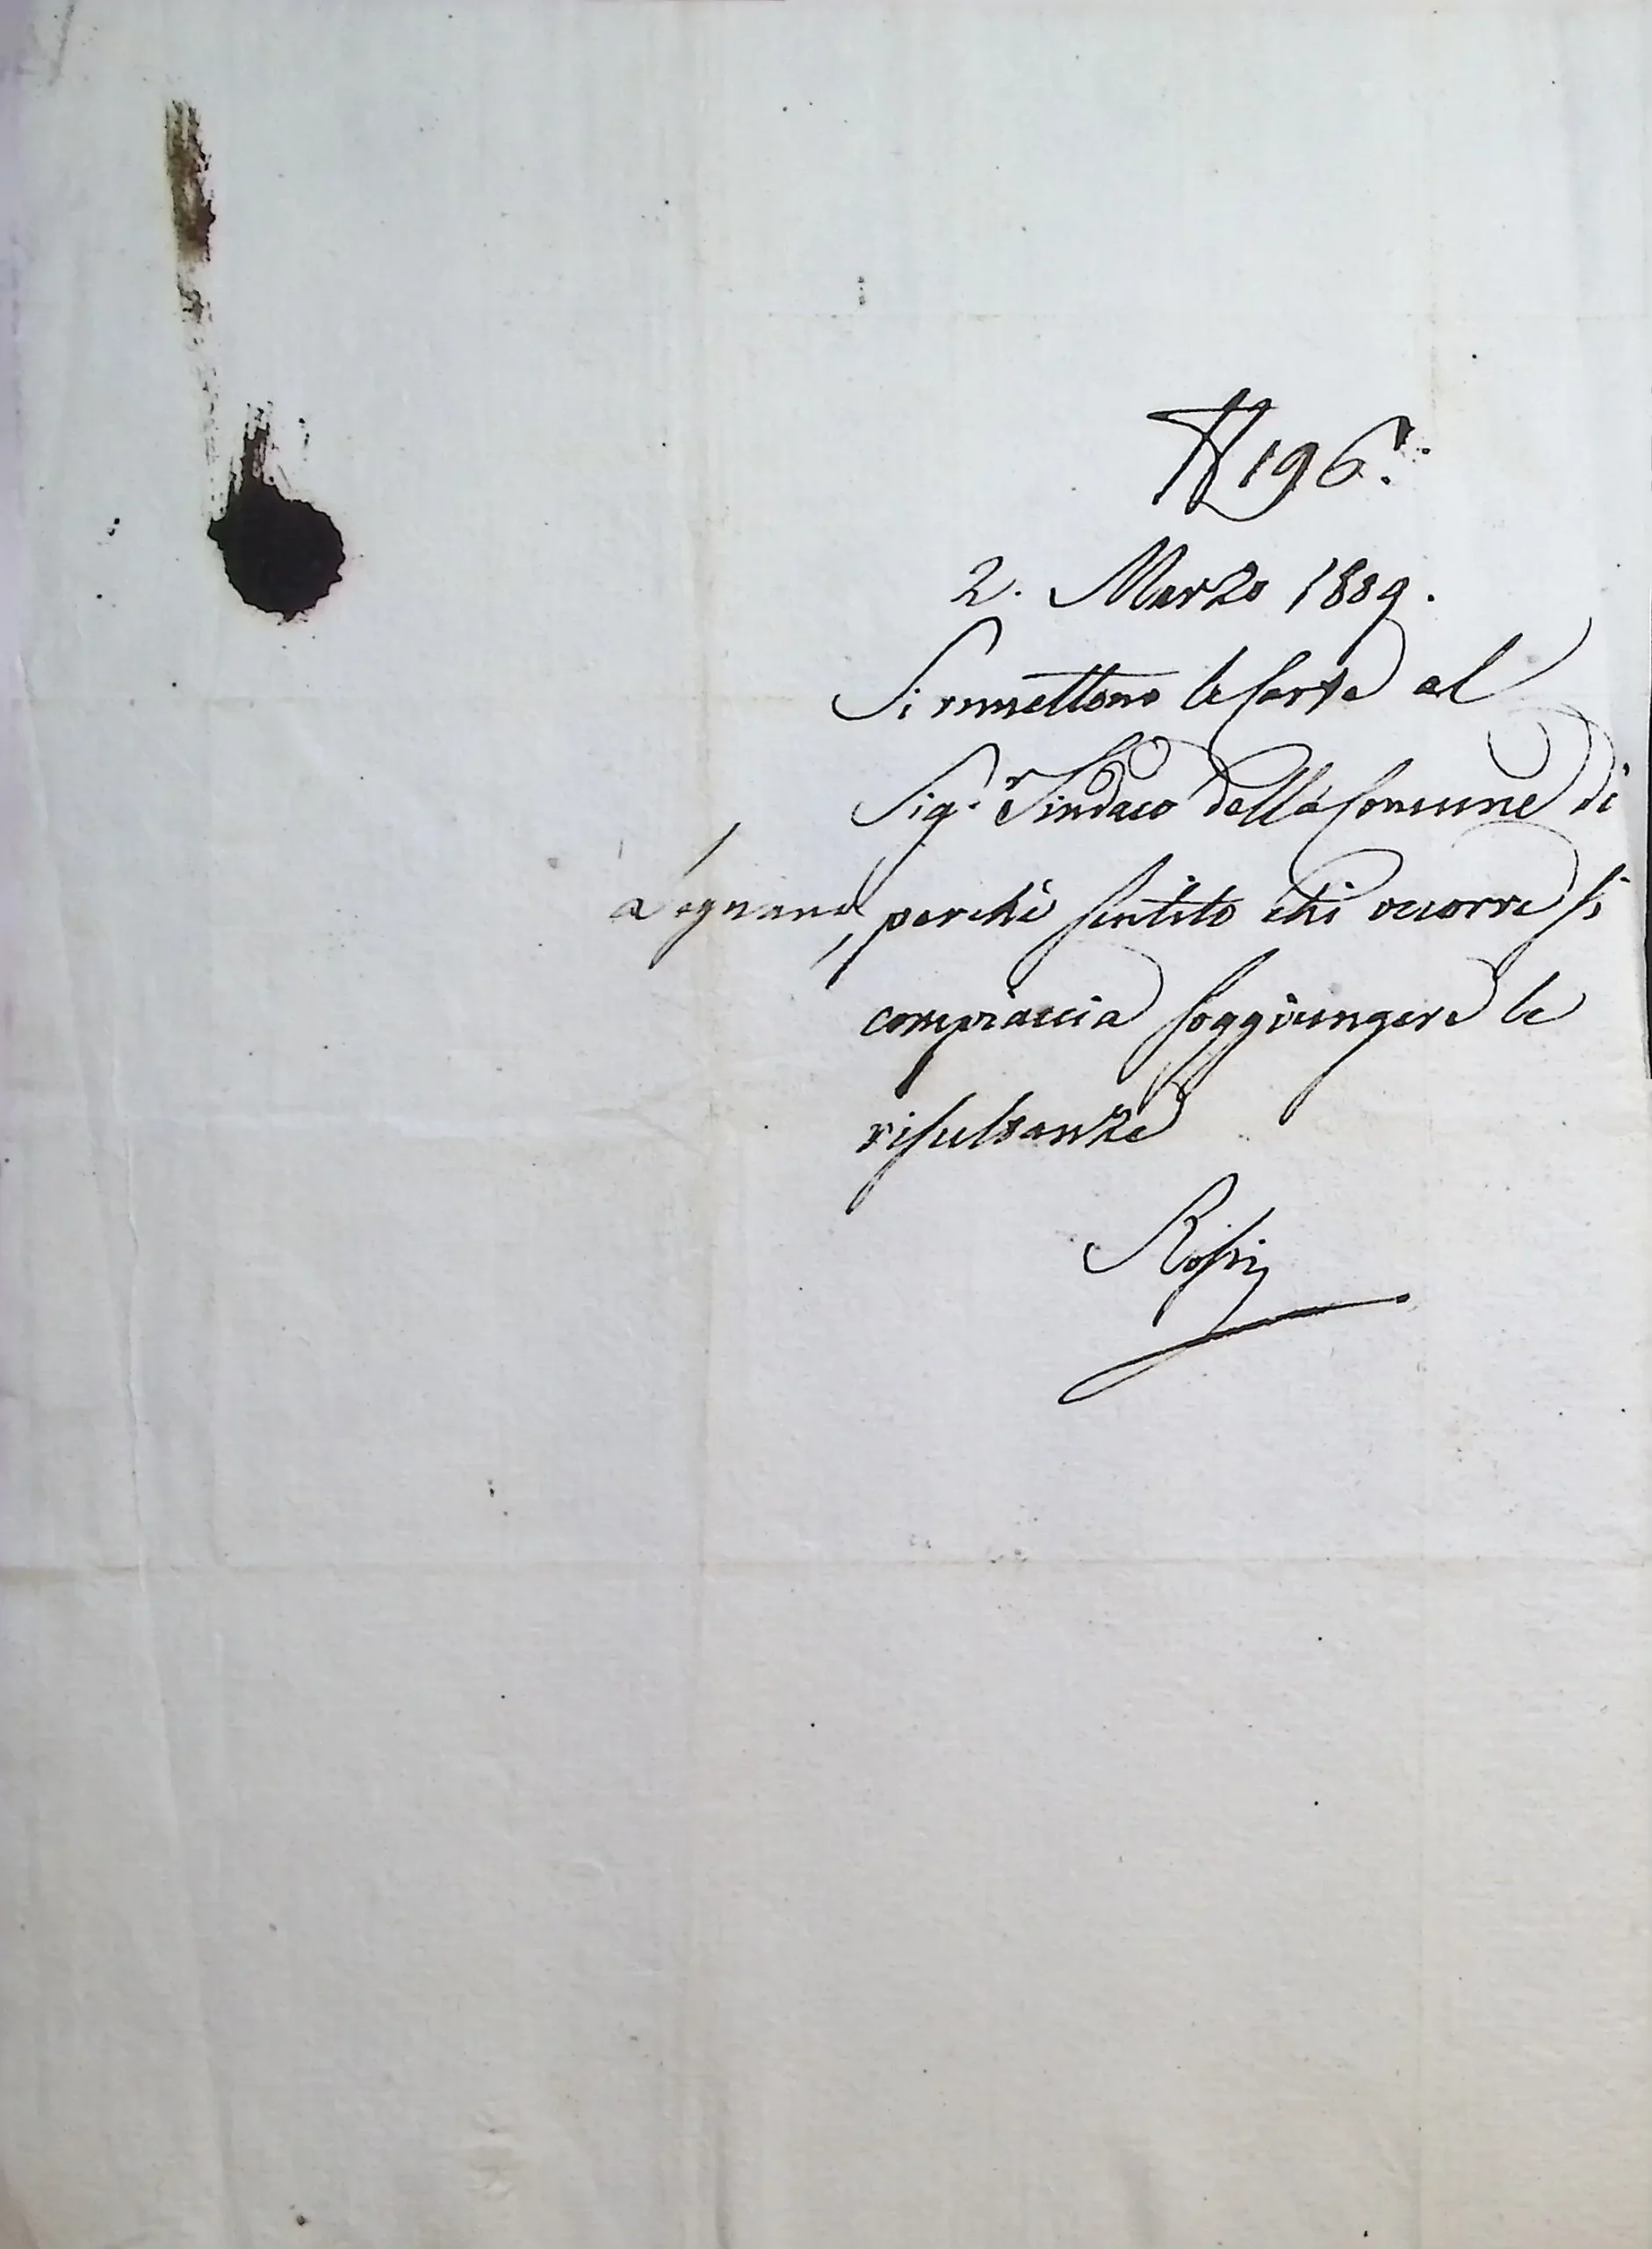 N 196.
2. Marzo 1809.
Si rimettono le Carte al
Sig.r Sindaco della Comune di
perchè sentito chi occorre si
compiaccia soggiungere le
risultanze
Rossi